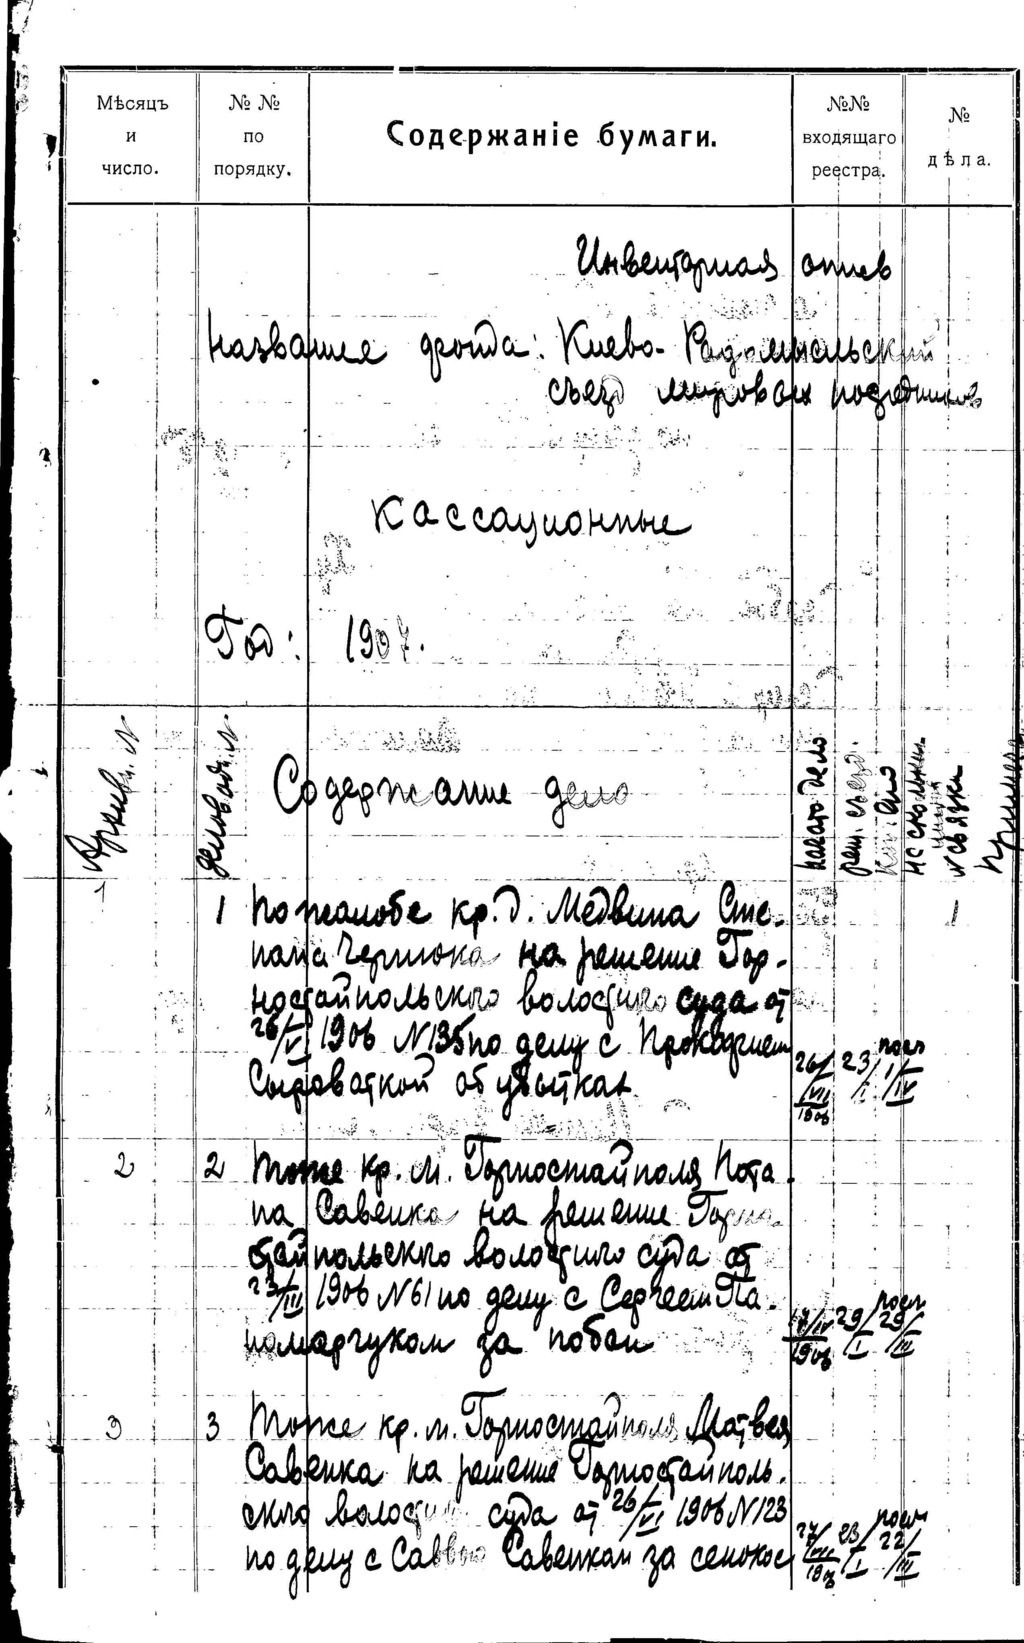 Мѣсяцъ и число.
№ № по порядку.
Содержаніе бумаги.
№№ входящаго реестра.
№ дѣла.
Инвентарная опись
Название фонда: Киево-Радомысльский
съезд мировых посредников
Кассационные
Год: 1907.
Архивн. №
деловой №
Содержание дело
начато дело
реш. съезд.
№ связки
1
1 По жалобе кр. д. Медвина Сте-
пана Чернюка на решение Гор-
ностайпольского волостного суда от
26/VI 1906 №135 по делу с Прокофием
Сыроваткой об убытках
26/VII 1906 23/I посл 1/IV
1
2 2 Тоже кр. м. Горностайполя Пота-
па Савенко на решение Горно-
стайпольского волостного суда от
23/III 1906 №61 по делу с Сергеем Па-
номарчуком за побои
17/IV 1906 29/I посл 29/III
3 3 Тоже кр. м. Горностайполя Матвея
Савенка на решение Горностайполь-
ского волостн. суда от 26/VI 1906 №123
по делу с Саввою Савенком за сенокос
27/VII 190 23/I посл 22/III